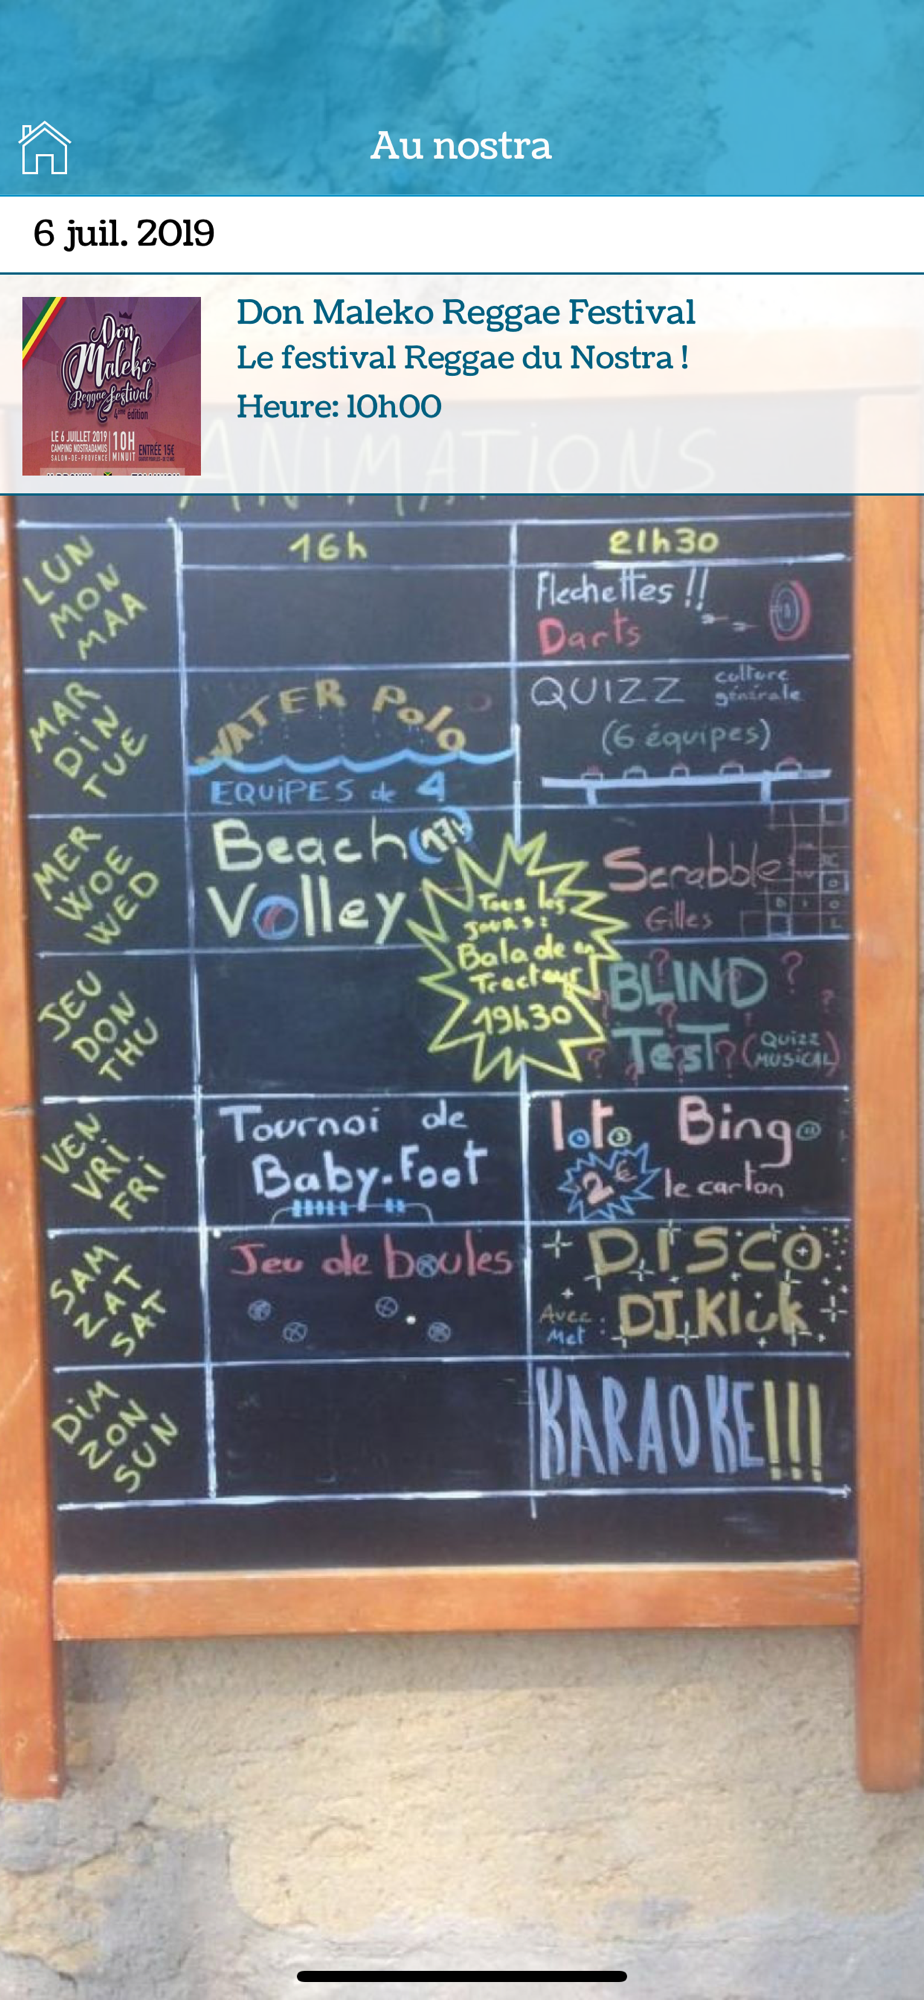 Au nostra
6 juil. 2019
Don Maleko Reggae Festival
Le festival Reggae du Nostra !
Heure: 10h00
Don
Maleko
Reggae Festival
4ème édition
LE 6 JUILLET 2019
CAMPING NOSTRADAMUS
SALON-DE-PROVENCE
10H
MINUIT
ENTRÉE 15€
ANIMATIONS
16h
21h30
LUN
MON
MAA
Flechettes !!
Darts
MAR
DIN
TUE
WATER Polo
EQUIPES de 4
QUIZZ culture
générale
(6 équipes)
MER
WOE
WED
Beach 17h
Volley
Scrabble
Gilles
Tous les
jours :
Balade en
Tracteur
19h30
JEU
DON
THU
BLIND ?
Test? (Quizz
MUSICAL)
VEN
VRI
FRI
Tournoi de
Baby-Foot
loto Bingo
2€ le carton
SAM
ZAT
SAT
Jeu de boules
DISCO
Avec
Met : DJ Kluk
DIM
ZON
SUN
KARAOKE!!!